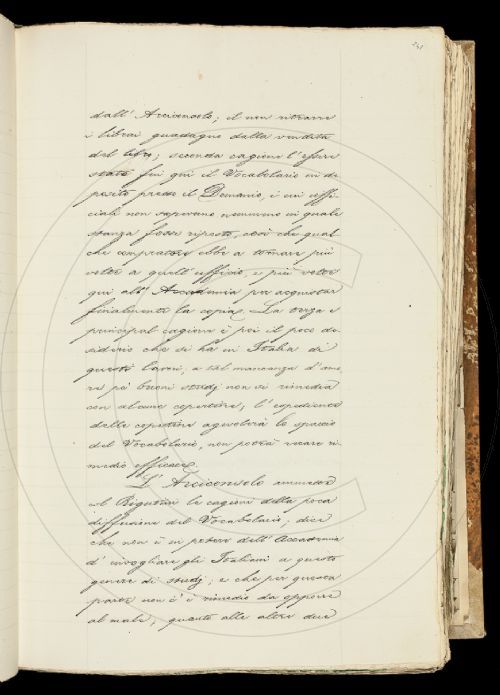 241
dall' Arciconsolo; il non ritrarre
i librai guadagno dalla vendita
del libro; seconda cagione l'essere
stato fin qui il Vocabolario in de-
posito presso il Demanio, i cui uffi-
ciali non sapevano nemmeno in quale
stanza fosse riposto, così che qual-
che compratore ebbe a tornare più
volte a quell'ufficio, e più volte
qui all'Accademia per acquistar
finalmente la copia. La terza e
principal cagione è poi il poco de-
siderio che si ha in Italia di
questi lavori, a tal mancanza d'amo-
re pe' buoni studj non si rimedia
con alcune copertine, l'espediente
delle copertine agevolerà lo spaccio
del Vocabolario, non potrà recare ri-
medio efficace.
L'Arciconsolo
col Rigutini le cagioni della poca
diffusione del Vocabolario; dice
che non è in potere dell'Accademia
d'invogliare gli Italiani a questo
genere di studj; e che per questa
parte non c'è rimedio da opporre
al male; quanto alle altre due